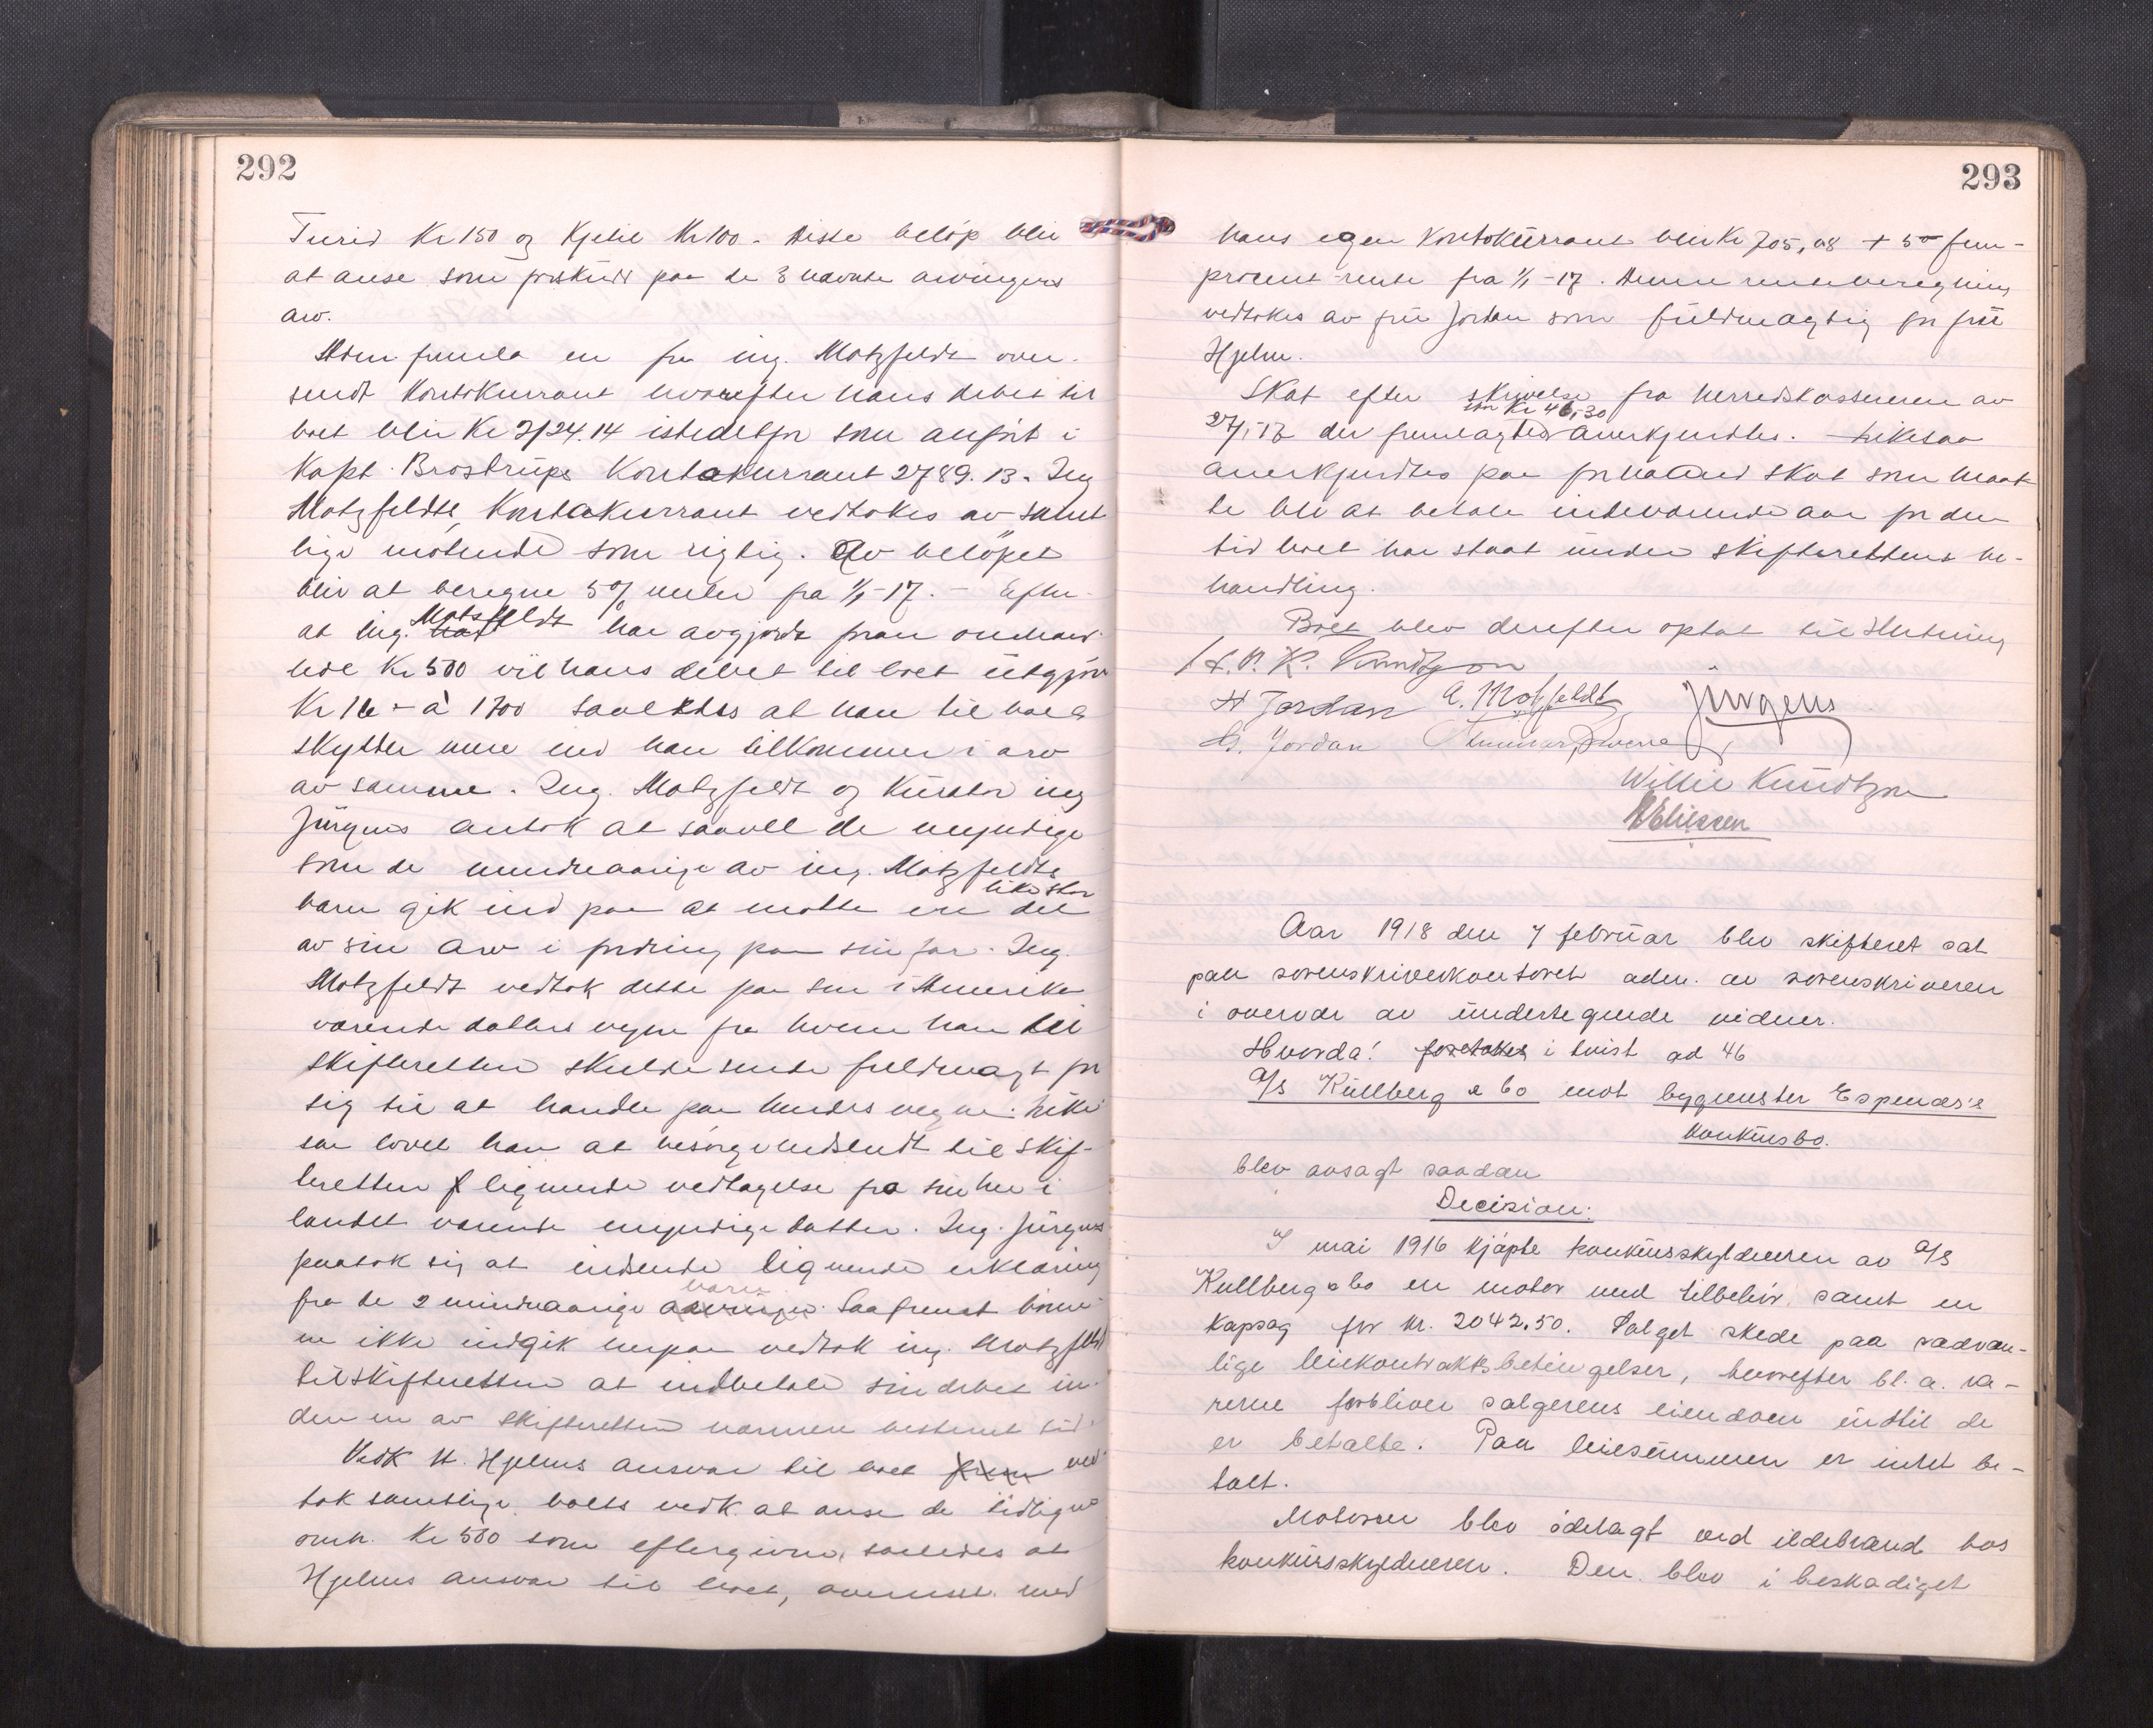 292
Turid Kr 150 og Kjetil Kr 100. Disse beløp blir
at anse som forskudt paa de 3 nævnte arvingers
arv.
Adm. fremla en fra ing. Motzfeldt over-
sendt Kontokurrant hvorefter hans debet til
boet blir Kr 2724.14 istedetfor som anført i
Kapt. Brostrups Kontokurrant 2789.13. Ing
Motzfeldts Kontokurrant vedtokes av samt
lige møtende som rigtig. Av beløpet
blir at beregne 5% renter fra 1/1-17. - Efter
at ing. Motzfeldt har avgjordt foran omhand-
lede Kr 500 vil hans debet til boet utgjøre
Kr 16 - à 1700 saaledes at han til boet
skylder mere end han tilkommer i arv
av samme. Ing. Motzfeldt og Kurator ing
Jürgens antok at saavel de myndige
som de mindreaarige av ing. Motzfeldts
barn gik ind paa at motta en like stor del
av sin arv i fordring paa sin far. Ing.
Motzfeldt vedtok dette paa sin i Amerika
værende datters vegne fra hvem han til
skifteretten skulde sende fuldmagt for
sig til at handle paa hendes vegne. Like
saa lovet han at besørge indsendt til skif-
teretten lignende vedtagelse fra sin her i
landet værende myndige datter. Ing. Jürgens
paatok sig at indsende lignende erklæring
fra de 2 mindreaarige barn. Saafremt børne
ne ikke indgik herpaa vedtok ing. Motzfeldt
til skifteretten at indbetale sin debet in-
den en av skifteretten nærmere bestemt tid.
Vedk H. Hjelms ansvar til boet ved
tok samtlige boets vedk. at anse de tidligere
omh. Kr 500 som eftergivne, saaledes at
Hjelms ansvar til boet, overenst. med
293
hans egen Kontokurrant blir Kr 705,08 + 5% fem-
procent rente fra 1/1-17. Denne renteberegning
vedtokes av fru Jordan som fuldmægtig for fru
Hjelm.
Skat efter skrivelse fra herredskassereren av
27/1-17 stor Kr 46,30 der fremlagdes anerkjendtes. Likesaa
anerkjendtes paa forhaand skat som maat
te bli at betale indeværende aar for den
tid boet har staat under skifterettens be-
handling.
Boet blev derefter optat til slutning
H. Jordan A. Motzfeldt Jürgens
G. Jordan
Willie Knudtzon
Aar 1918 den 7 februar blev skifteret sat
paa sorenskriverkontoret adm. av sorenskriveren
i overvær av undertegnede vidner.
Hvorda! foretokes i tvist ad 46
A/S Kullberg & Co mot bygmester Espenæs's
konkursbo.
blev avsagt saadan
Decision:
I mai 1916 kjøpte konkursskyldneren av A/S
Kullberg & Co en motor med tilbehør samt en
kapsag for kr. 2042.50. Salget skede paa sædvan-
lige leiekontraktsbetingelser, hvorefter bl. a. va-
rerne forbliver sælgerens eiendom indtil de
er betalte. Paa leiesummen er intet be-
talt.
Motoren blev ødelagt ved ildebrand hos
konkursskyldneren. Den blev i beskadiget